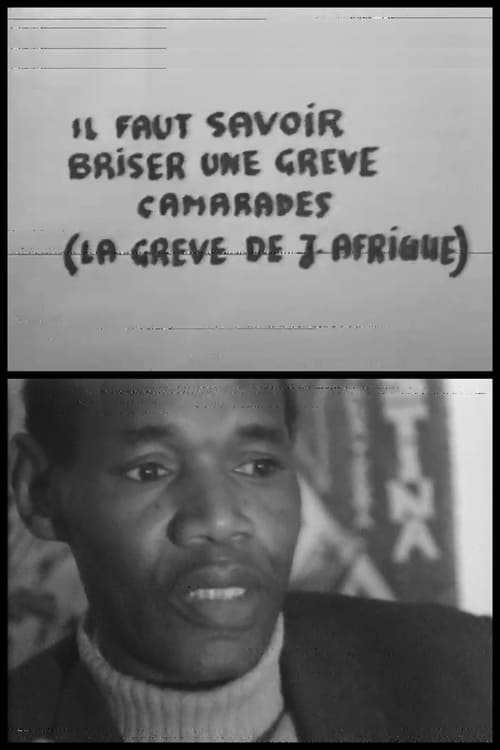 IL FAUT SAVOIR
BRISER UNE GREVE
CAMARADES
(LA GREVE DE J. AFRIQUE)
TINA